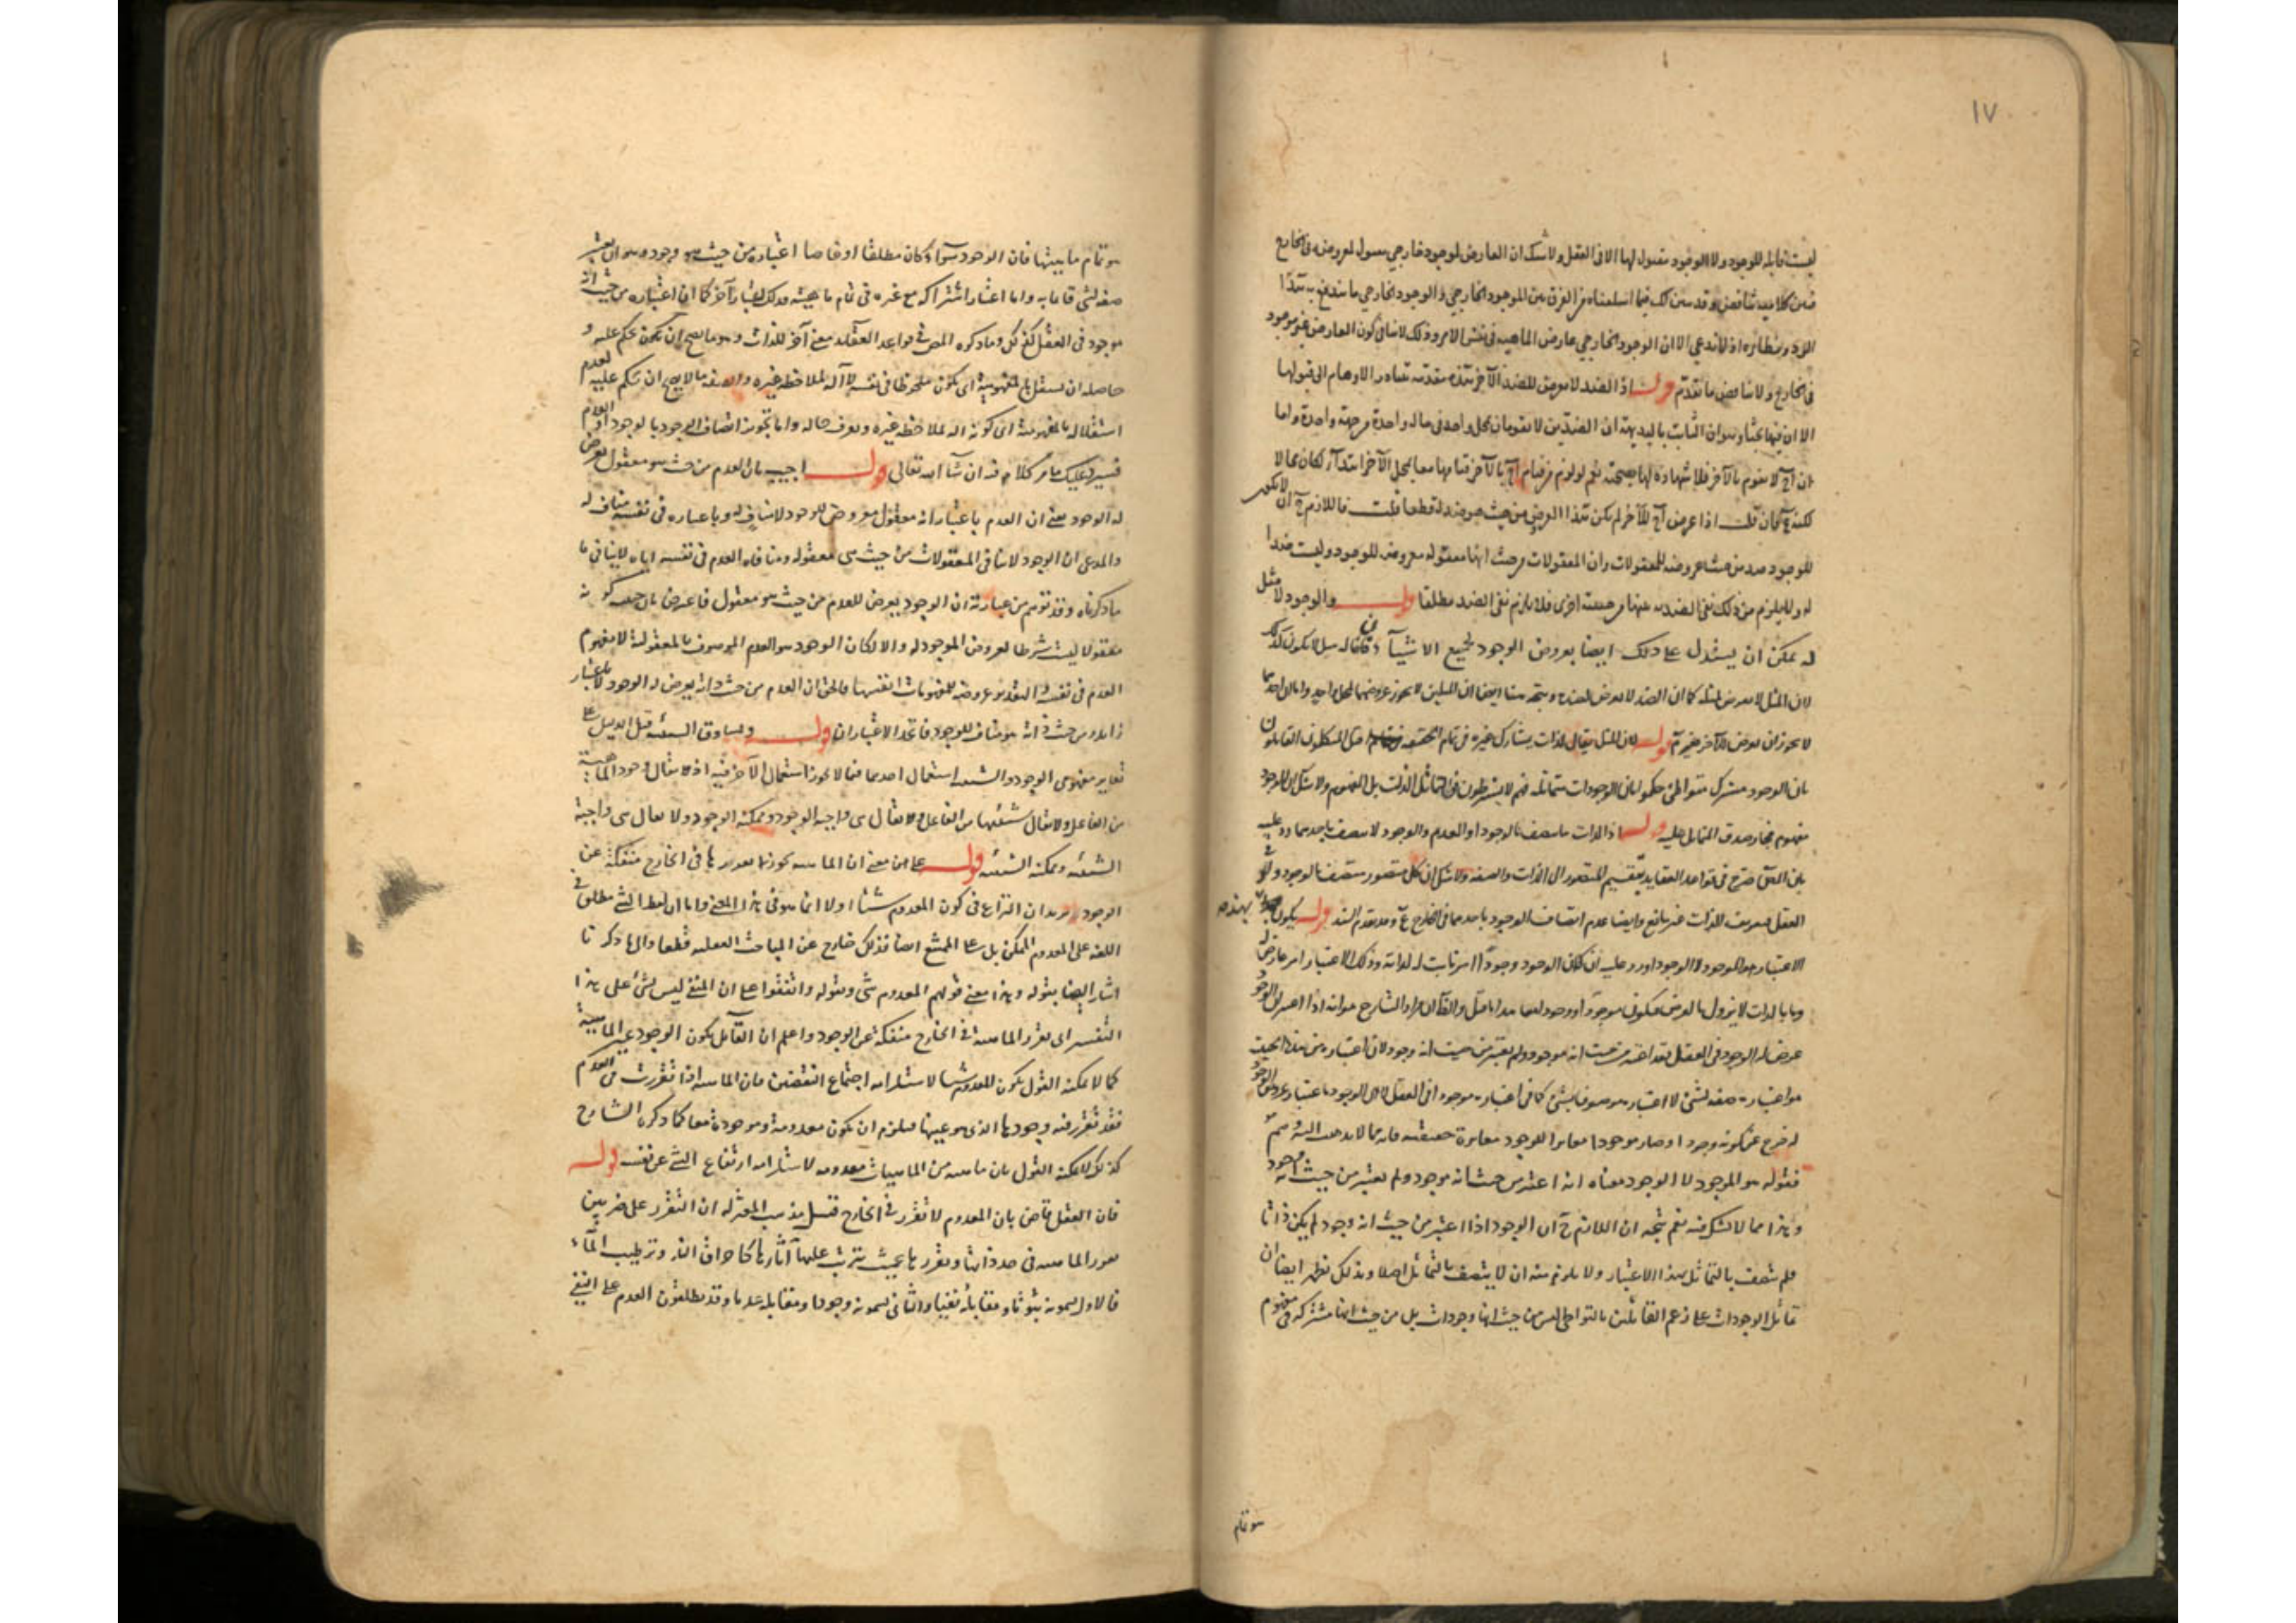 ١٧
ليست قابلة للوجود ولا الوجود مقبول لها الا فى العقل ولا شك ان العارض لوجود خارجي معروضه فى الخارج
فبين كلاميه تناقض وقد سبق لك فيما اسلفناه من الفرق بين الموجود الخارجي والوجود الخارجي ما يندفع به هذا
الا ان الوجود الخارجي عارض الماهية فى نفس الامر وذلك لا ينافى كون العارض غير موجود
فى الخارج ولا يناقض ما تقدم قوله اذ الضد لا يعرض للضد الآخر هذه مقدمة تتبادر الاوهام الى قبولها
الا ان فيها بحثا وهو ان الثابت بالبديهة ان الضدين لا يقومان بمحل واحد فى حالة واحدة من جهة واحدة واما
ان آح لا يقوم بالآخر فلا شهادة لها بصحته نعم لو لزم من قيام آح بالآخر قيامهما معا بمحل الآخر ابتداء لكان محالا
لكنه ح فان قلت اذا عرض آح للآخر لم يكن هذا العرض من حيث هو ضد له قطعا قلت فاللازم ح ان لا يكون
الوجود ضد من حيث عروضه للمعقولات وان المعقولات من حيث انها معقولة معروضة للوجود وليست ضدا
له ولا يلزم من ذلك نفى الضدية عنها من جهة اخرى فلا يلزم نفى الضد مطلقا قوله والوجود لا مثل
له يمكن ان يستدل على ذلك ايضا بعروض الوجود لجميع الاشياء فان مثاله سبيل لا يكون كذلك
لان المثل لا يعرض لمثله كما ان الضد لا يعرض لضده ويتجه هنا ايضا ان المثلين لا يجوز عروضهما لمحل واحد واما ان احدهما
لا يجوز ان يعرض للآخر فغير تم قوله لان المثل يقال لذات يشارك غيره فى تمام الحقيقة قيل المتكلمون القائلون
بان الوجود مشترك متواطئ حكموا بان الوجودات متماثلة فهم لا يشترطون فى التماثل الذات بل المفهوم ولا شك ان للوجود
مفهوم فجاز صدق المتماثل عليه قوله اذ الذات ما يتصف بالوجود او العدم والوجود لا يتصف باحدهما ورد عليه
بان المص صرح فى قواعد العقايد بتقسيم المتصور الى الذات والصفة ولا شك ان كل متصور متصف بالوجود ولو فى
العقل فتعريف الذات غير مانع وايضا عدم اتصاف الوجود باحدهما فى الخارج تم وقد تقدم السند قوله يكون بهذه
الاعتبار هو الموجود لا الوجود اورد عليه ان كان الوجود وجودا امر ثابت له لذاته وذلك الاعتبار امر عارض له
وما بالذات لا يزول بالعرض فيكون موجودا ووجودا معا هذا ما قيل والظ ان مراد الشارح هو انه اذا اعتبر ان الوجود
عرض له الوجود فى العقل فقد اعتبر من حيث انه موجود ولم يعتبر من حيث انه وجود لان اعتباره من هذه الحيثية
هو اعتباره صفة لشئ لا اعتباره موصوفا بشئ كما فى اعتباره موجودا فى العقل لا ان الوجود باعتبار عروض الوجود
له خرج عن كونه وجودا وصار موجودا مغايرا للوجود مغايرة حقيقية فانه مما لا يذهب اليه وهم
فقوله هو الموجود لا الوجود معناه انه اعتبر من حيث انه موجود ولم يعتبر من حيث انه وجود
وهذا مما لا شك فيه نعم يتجه ان اللازم ح ان الوجود اذا اعتبر من حيث انه وجود لم يكن ذاتا
فلم يتصف بالتماثل بهذا الاعتبار ولا يلزم منه ان لا يتصف بالتماثل اصلا وبذلك يظهر ايضا ان
تماثل الوجودات على زعم القائلين بالتواطى ليس من حيث انها وجودات بل من حيث انها مشتركة فى مفهوم
هو تمام
هو تمام ماهيتها فان الوجود سواء كان مطلقا او خاصا اعتباره من حيث هو وجود هو ان يعتبر
صفة لشئ قائما به واما اعتبار اشتراكه مع غيره فى تمام ماهيته فذلك اعتبار آخر كما ان اعتباره من حيث انه
موجود فى العقل كذلك وما ذكره المص فى قواعد العقايد معنى آخر للذات وهو ما يصح ان يكون يحكم عليه و
حاصله ان يستقل بالمفهومية اى يكون ملحوظا فى نفسه لا آلة لملاحظة غيره والصفة ما لا يصح ان يحكم عليه لعدم
استقلاله بالمفهومية اى كونه آلة لملاحظة غيره وتعرف حاله واما تجويز اتصاف الوجود بالوجود او العدم
فسيرد عليك ما مر كلام فيه ان شاء الله تعالى قوله اجيب بان العدم من حيث هو معقول يعرض
له الوجود يعنى ان العدم باعتبار انه معقول معروض للوجود لا مناف له وباعتباره فى نفسه مناف له
والمدعى ان الوجود لا ينافى المعقولات من حيث هى معقولة ومنافاة العدم فى نفسه اياه لا ينافى ما
ما ذكرناه وقد توهم من عبارته ان الوجود يعرض للعدم من حيث هو معقول فاعترض بان حيثية كونه
معقولا ليست شرطا لعروض الموجود له والا لكان الوجود هو العدم الموصوف بالمعقولية لا مفهوم
العدم فى نفسه والمقدم عروضه للمفهومات انفسها فالحق ان العدم من حيث ذاته يعرض له الوجود لا باعتبار
زايد ومن حيث ذاته هو مناف للوجود فاتحد الاعتباران قوله ويساوق الشيئية قيل الدليل على
تغاير مفهومى الوجود والشيئية استعمال احدهما فيما لا يجوز استعمال الآخر فيه اذ يقال وجود الماهية
من الفاعل ولا يقال شيئيتها من الفاعل ويقال هى واجبة الوجود وممكنة الوجود ولا يقال هى واجبة
الشيئية وممكنة الشيئية قوله على معنى ان الماهية يجوز تقررها فى الخارج منفكة عن
الوجود يريد ان النزاع فى كون المعدوم شيئا او لا انما هو فى هذا المعنى واما ان لفظ الشئ يطلق فى
اللغة على المعدوم الممكن بل على الممتنع ايضا فذلك خارج عن المباحث العقلية قطعا والى ما ذكرنا
اشار ايضا بقوله وهذا معنى قولهم المعدوم شئ وبقوله واتفقوا على ان المنفى ليس بشئ على هذا
التفسير اى تقرر الماهية فى الخارج منفكة عن الوجود واعلم ان القائل بكون الوجود عين الماهية
كما لا يمكنه القول بكون المعدوم شيئا لاستلزامه اجتماع النقيضين فان الماهية اذا تقررت فى العدم
فقد تقرر فيه وجودها الذى هو عينها فيلزم ان يكون معدومة وموجودة معا كما ذكره الشارح
كذلك لا يمكنه القول بان ماهية من الماهيات معدومة لاستلزامه ارتفاع الشئ عن نفسه قوله
فان العقل قاض بان المعدوم لا تقرر فى الخارج قيل مذهب المعتزلة ان التقرر على ضربين
تقرر الماهية فى حد ذاتها وتقررها بحيث يترتب عليها آثارها كاحراق النار وترطيب الماء
فالاول يسمونه ثبوتا ومقابله نفيا والثانى يسمونه وجودا ومقابله عدما وقد يطلقون العدم على النفى